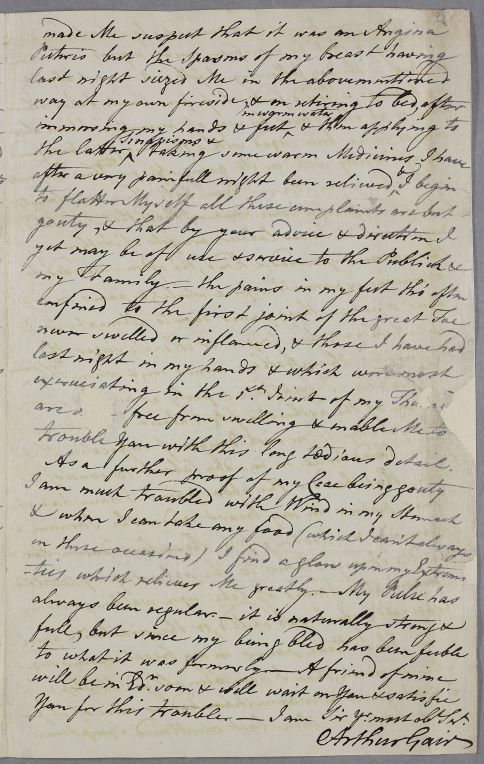 made Me suspect that it was an Angina
Pectoris but the Spasms of my breast having
last night seized Me in the abovementioned
way at my own fireside, & on retiring to bed, after
in warm water
immersing my hands & feet, & then applying to
Sinapisms &
the latter, taking some warm Medicines, I have
after a very painfull night been relieved, & I begin
to flatter Myself all these complaints are but
gouty, & that by your advice & direction I
yet may be of use & service to the Publick &
my Family. — the pains in my feet tho' often
confined to the first joint of the great Toe
never swelled or inflamed, & those I have had
last night in my hands & which were most
excruciating in the 1st Joint of my
are free from swelling & enable Me to
trouble You with this long tedious detail.
As a further proof of my Case being gouty
I am much troubled with Wind in my Stomach
& when I can take any food (which I can't always
on these occasions) I find a glow upon my Extremi
-ties which relieves Me greatly. — My Pulse has
always been regular. — it is naturally strong &
full, but since my being bled has been feeble
to what it was formerly — A friend of mine
will be in Edn. soon & will wait on You & satisfie
You for this trouble — I am Sir Yr. most obt. Sert.
Arthur Gair